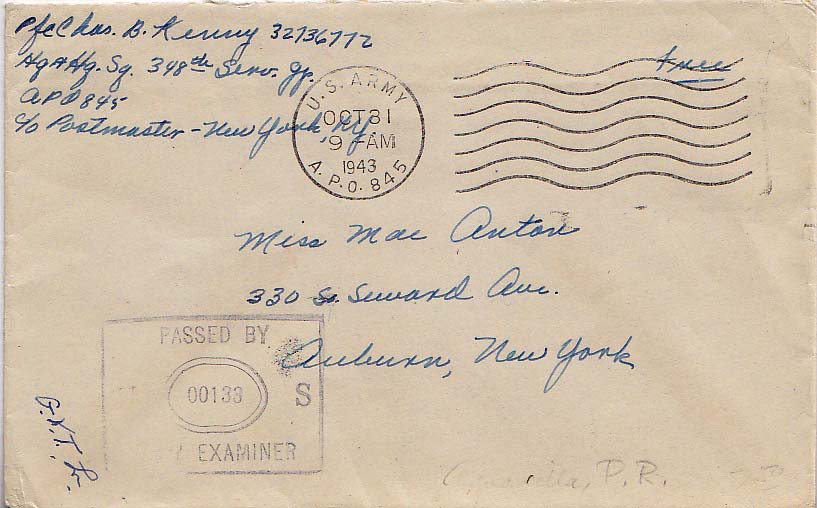 Pfc Chas. B. Kenny 32736772
Hq & Hq. Sq. 348th Serv. Gp.
APO 845
c/o Postmaster - New York, N.Y.
Free
U.S. ARMY
OCT 31
9 - AM
1943
A.P.O. 845
Miss Mae Anton
330 S. Seward Ave.
Auburn, New York
PASSED BY
00133
S
EXAMINER
P.R.